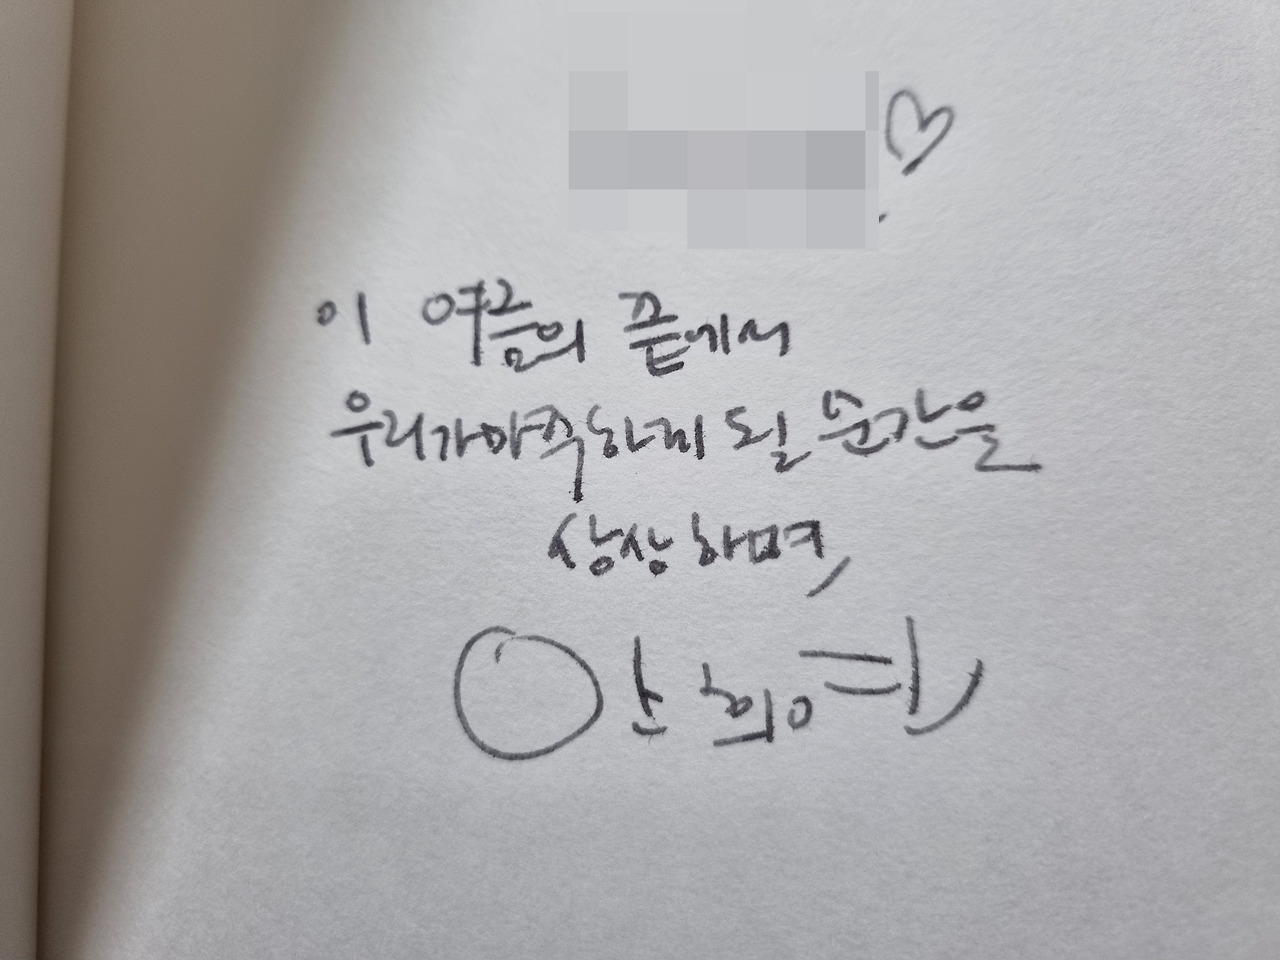 이 여름의 끝에서
우리가 마주하게 될 순간을
상상하며,
안희연